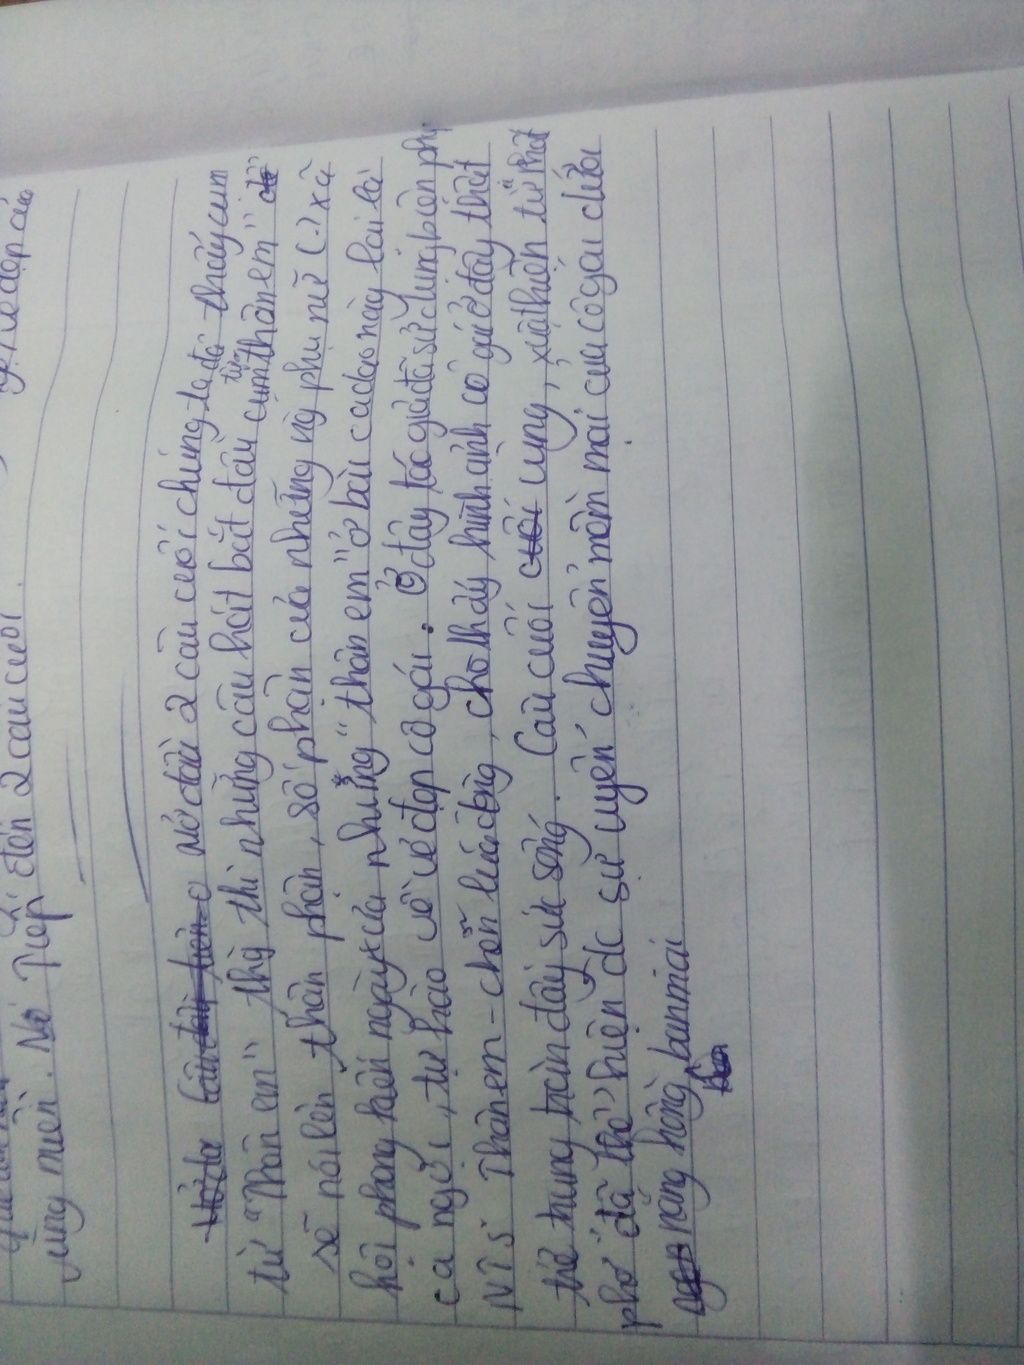 ẹ, vẻ đẹp của
vùng miền. Nó Tiếp đến 2 câu cuối.
mở đầu 2 câu cuối chúng ta đã thấy cụm
từ "Thân em" thì thì những câu hát bắt đầu từ cụm "thân em"
sẽ nói lên thân phận, số phận của những ng phụ nữ ở xã
hội phong kiến ngày xưa nhưng "thân em" ở bài ca dao này lại là
ca ngợi, tự hào về vẻ đẹp cô gái. Ở đây tác giả đã sử dụng biện pháp
NT s² Thân em - chẽn lúa đòng, cho thấy hình ảnh cô gái ở đây thật
trẻ trung, tràn đầy sức sống. Câu cuối cuối cùng, xuất hiện từ "phất
phơ" đã thể hiện đc sự uyển chuyển mềm mại của cô gái dưới
nắng hồng ban mai